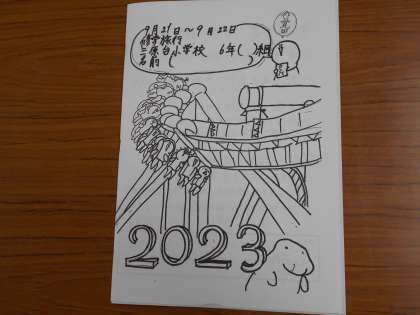 9月21日～9月22日
修学旅行
三原台小学校 6年( )組
名前 (
2023